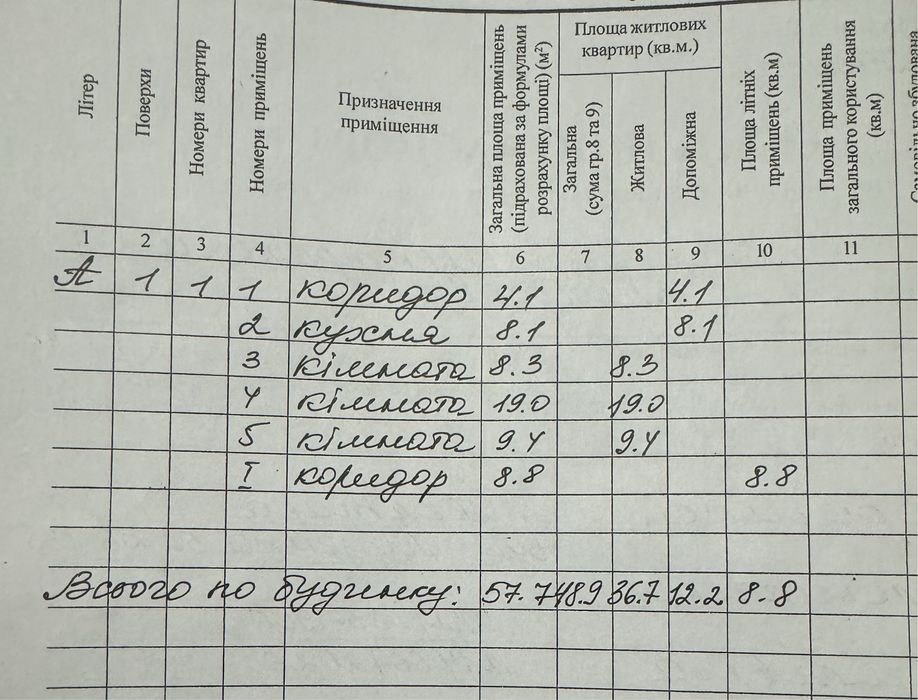 Літер
Поверхи
Номери квартир
Номери приміщень
Призначення
приміщення
Загальна площа приміщень
(підрахована за формулами
розрахунку площі) (м²)
Площа житлових
квартир (кв.м.)
Загальна
(сума гр.8 та 9)
Житлова
Допоміжна
Площа літніх
приміщень (кв.м)
Площа приміщень
загального користування
(кв.м)
1 2 3 4 5 6 7 8 9 10 11
А 1 1 1 коридор 4.1 4.1
2 кухня 8.1 8.1
3 кімната 8.3 8.3
4 кімната 19.0 19.0
5 кімната 9.4 9.4
I коридор 8.8 8.8
Всього по будинку: 57.7 48.9 36.7 12.2 8.8